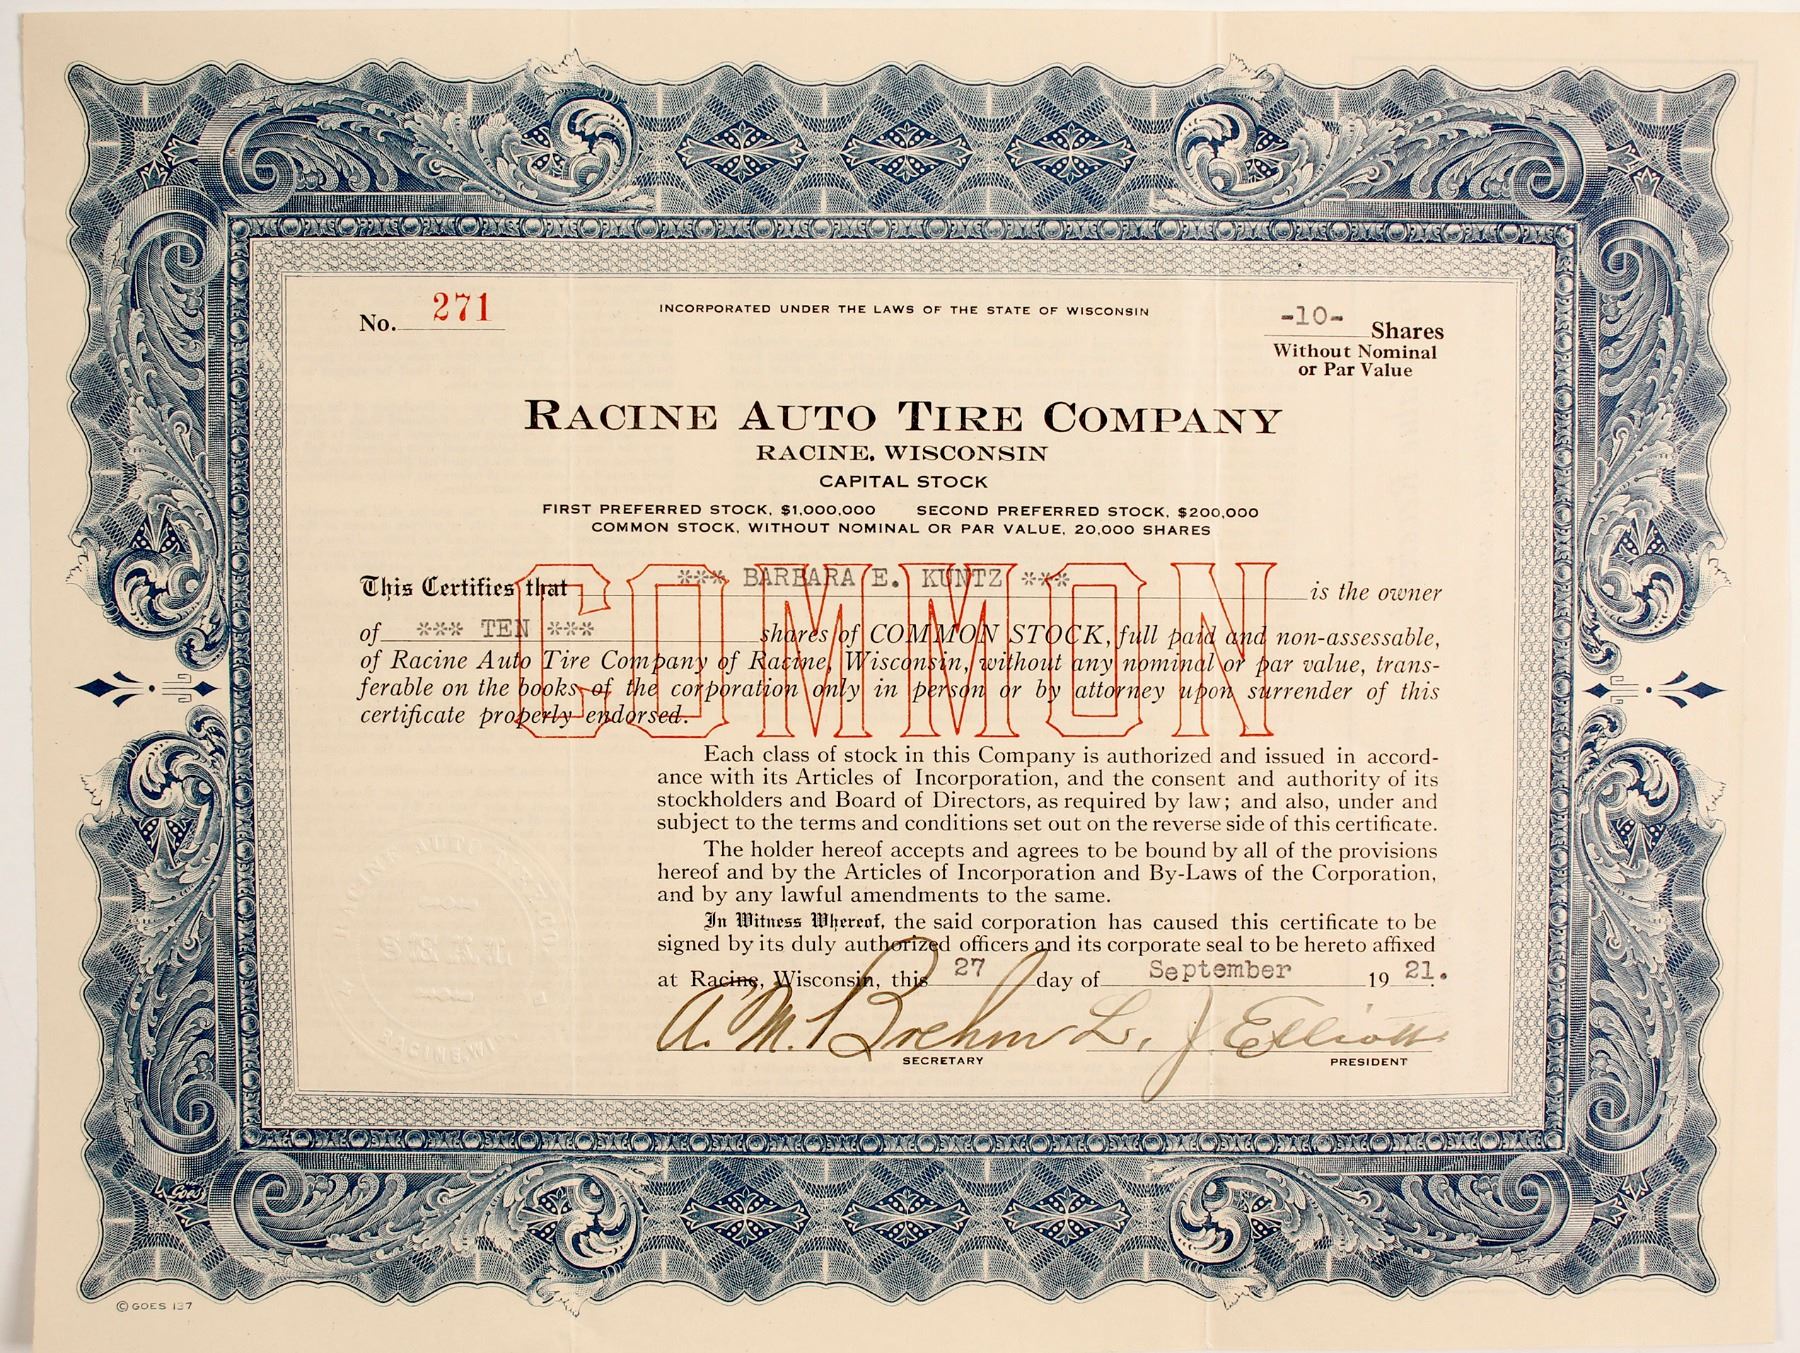 No. 271
INCORPORATED UNDER THE LAWS OF THE STATE OF WISCONSIN
-10- Shares
Without Nominal
or Par Value
RACINE AUTO TIRE COMPANY
RACINE, WISCONSIN
CAPITAL STOCK
FIRST PREFERRED STOCK, $1,000,000 SECOND PREFERRED STOCK, $200,000
COMMON STOCK, WITHOUT NOMINAL OR PAR VALUE, 20,000 SHARES
COMMON
This Certifies that *** BARBARA E. KUNTZ *** is the owner
of *** TEN *** shares of COMMON STOCK, full paid and non-assessable,
of Racine Auto Tire Company of Racine, Wisconsin, without any nominal or par value, trans-
ferable on the books of the corporation only in person or by attorney upon surrender of this
certificate properly endorsed.
Each class of stock in this Company is authorized and issued in accord-
ance with its Articles of Incorporation, and the consent and authority of its
stockholders and Board of Directors, as required by law; and also, under and
subject to the terms and conditions set out on the reverse side of this certificate.
The holder hereof accepts and agrees to be bound by all of the provisions
hereof and by the Articles of Incorporation and By-Laws of the Corporation,
and by any lawful amendments to the same.
In Witness Whereof, the said corporation has caused this certificate to be
signed by its duly authorized officers and its corporate seal to be hereto affixed
at Racine, Wisconsin, this 27 day of September 19 21.
A. M. Brehm L. J. Elliott
SECRETARY PRESIDENT
RACINE AUTO TIRE CO.
SEAL
RACINE, WIS.
Goes
© GOES 137